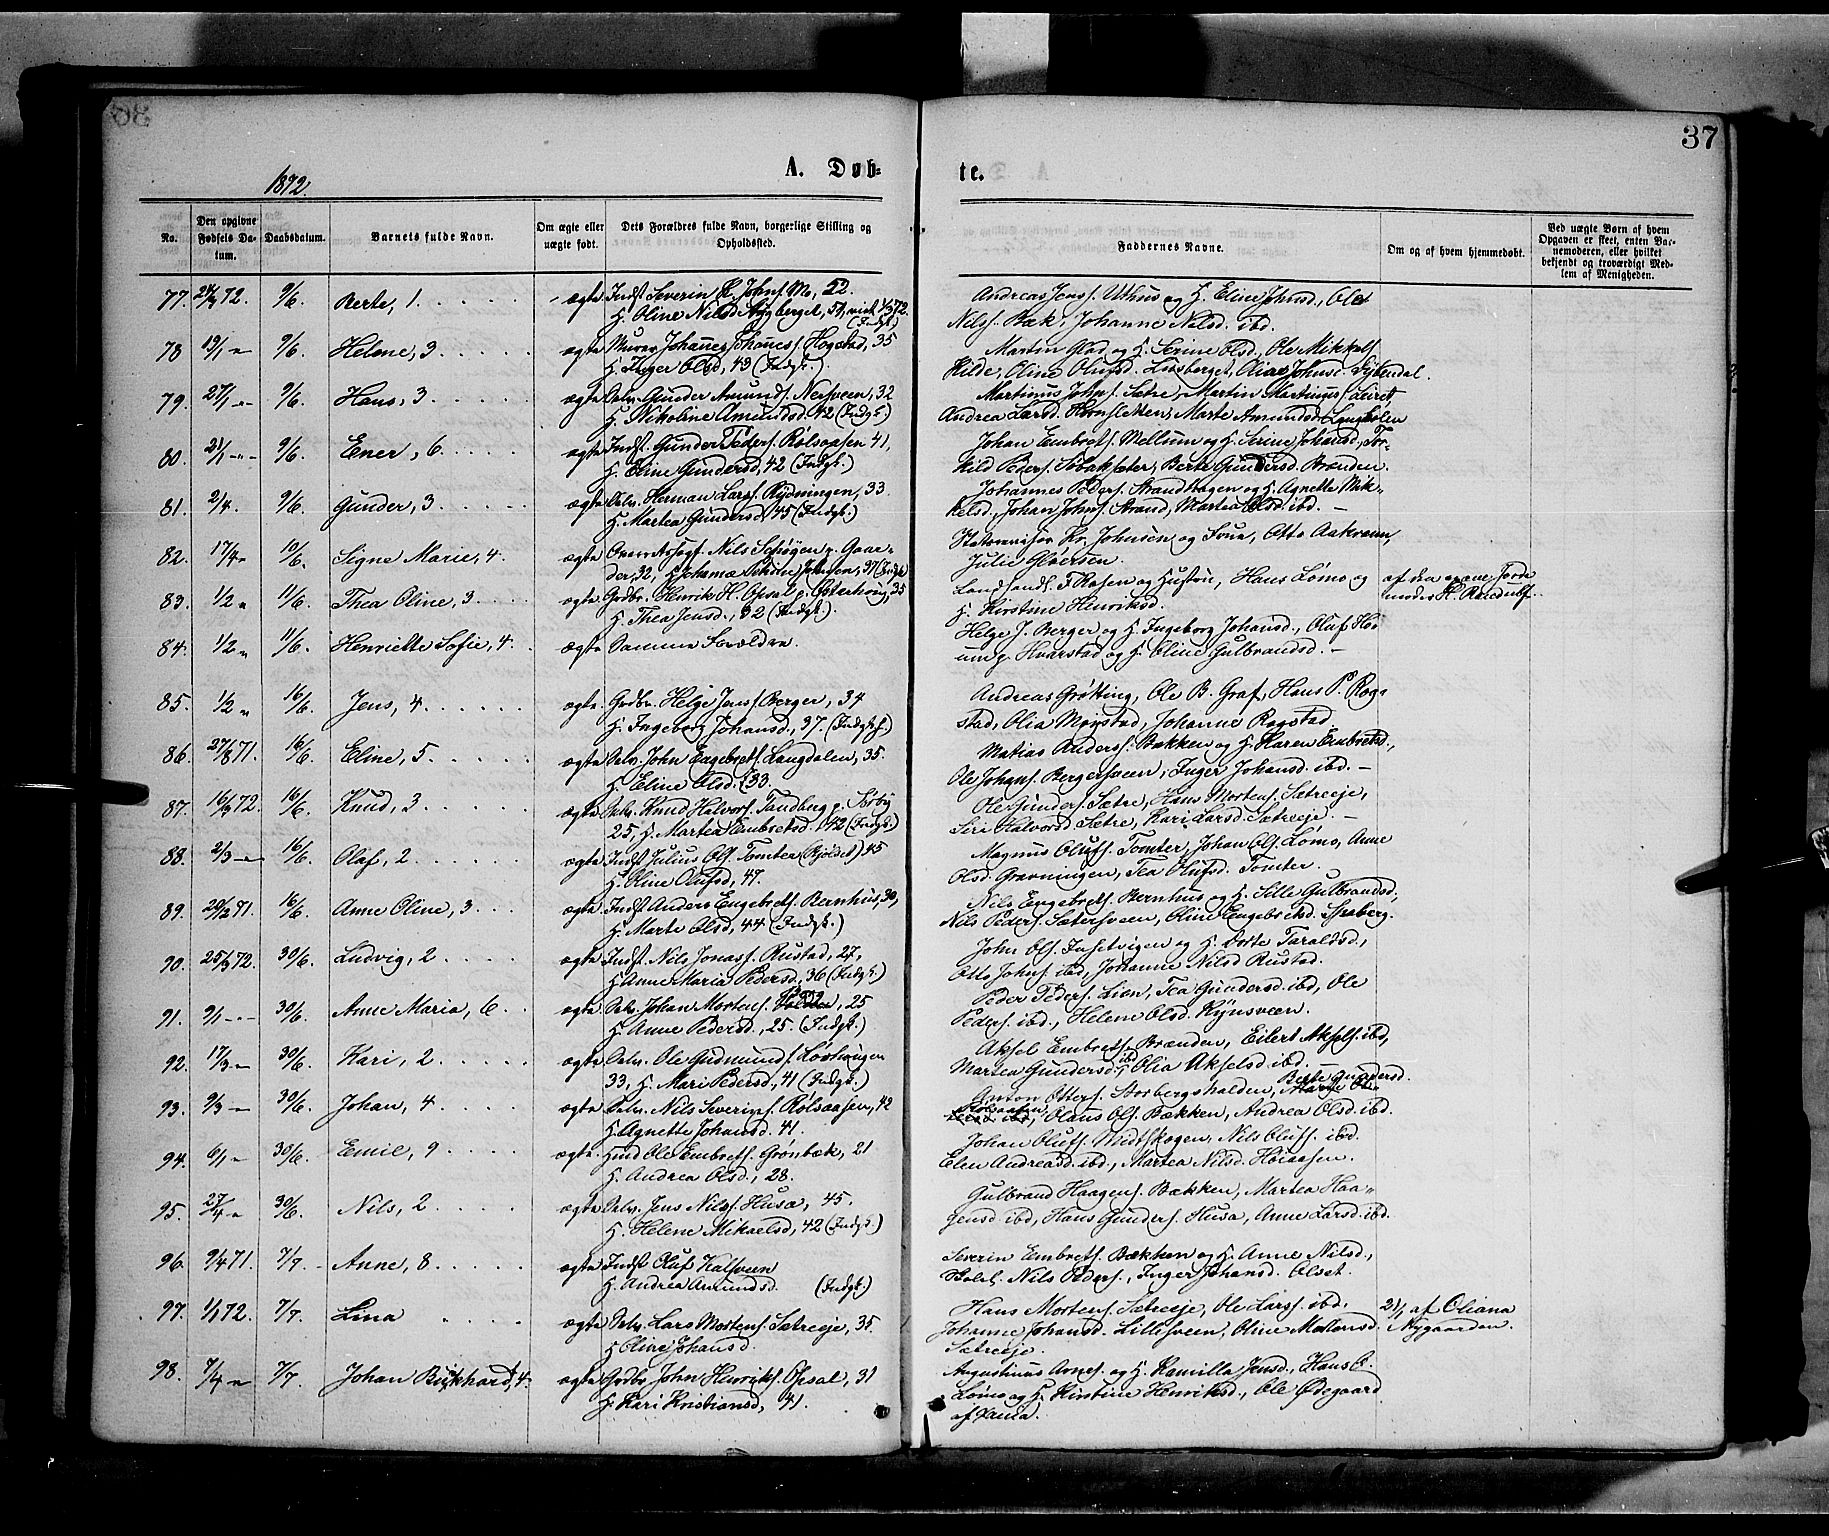 37
1872.
A. Døb-
te.
No.
Den opgivne Fødsels Datum.
Daabsdatum.
Barnets fulde Navn.
Om ægte eller uægte født.
Dets Forældres fulde Navn, borgerlige Stilling og Opholdssted.
Faddernes Navne.
Om og af hvem hjemmedøbt.
Ved uægte Børn af hvem Opgaven er skeet, enten Barnemoderen, eller hvilket bekjendt og troværdigt Medlem af Menigheden.
77. 72. 9/6. Berte, 1. ægte Indst Severin K. Johns. Mo, 52.
H. Oline Nilsd Stygberget, 51, viet 1/3 72. (Indgt.)
Andreas Jens. Uthus og H. Eline Johnsd., Ole
Nilss. Bæk, Johanne Nilsd. ibd.
78 19/1 " 9/6. Helene, 3. ægte Murer Johannes Johannes. Hogstad, 35
H. Inger Olsd, 43 (Indgt.).
Martin Glad og H. Serine Olsd., Ole Mikkels.
Kilde, Oline Olufsd. Livsberget, Oline Johnsd. Dybendal.
79. 27/1 " 9/6. Hans, 3. ægte Selv. Gunder Amunds. Nersveen, 32
H. Nikoline Amundsd. 42 (Indgt.)
Martinus Johns. Sætre, Martin Martinus. Leiret,
Andrea Larsd. Hornsletten, Marte Amundsd. Langbolen
80. 21/1 " 9/6. Ener, 6. ægte Indst. Gunder Peders. Rolsaasen 41,
H. Oline Gundersd, 42 (Indgt.)
Johan Embrets. Mellum og H. Serine Johansd, Tor-
kild Peders. Sobaksæter, Berte Gundersd. Brænden.
81. 2/4. 9/6. Gunder, 3. ægte Selv. Herman Larss. Rydningen, 33.
H. Martea Gundersd, 45 (Indgt.)
Johannes Peders. Strandhagen og H. Agnette Mik-
kelsd., Johan Johns. Strand, Martea Olsd. ibd.
82. 17/4 " 10/6. Signe Marie, 4. ægte Overretssagf. Nils Schøyen p. Gaar-
der, 32, H. Johanne 37 (Indgt)
Statsrevisor Kr. Johnsen og Frue, Otto Aakrann,
Julie Gløersen.
83. 1/2 " 11/6. Thea Oline, 3. ægte Grdbr. Henrik H. Opsal p. Østerhaug, 35
H. Thea Jensd., 32 (Indgt.)
Landhandl. T. Rosen og Hustru, Hans Lømo og
H. Kirstine Henriksd.
af den exam. Jorde
moder K. Randulf.
84. 1/2 " 11/6. Henriette Sofie, 4. ægte Samme Forældre.
Helge J. Berger og H. Ingeborg Johansd., Oluf Hos
um p. Hvarstad og H. Oline Gulbrandsd.
85. 1/2 " 16/6. Jens, 4. ægte Grdbr. Helge Jens. Berger, 34
H. Ingeborg Johansd., 37. (Indgt.)
Andreas Grøtting, Ole B. Graf, Hans P. Rog-
stad, Olia Møystad, Johanne Rogstad.
86. 27/8 71. 16/6. Eline, 5. ægte Selv. John Engebrets. Langdalen, 35.
H. Eline Olsd. 33.
Matias Anders. Bakken og H. Karen Embretsd.,
Ole Johans. Bergersveen, Inger Johansd. ibd.
87. 16/3 72. 16/6. Knud, 3. ægte Selv. Knud Halvors. Tandberg p. Sørby
25, H. Martea Embretsd. 42 (Indgt.)
Ole Gunders. Sætre, Hans Mortens. Sætreeje,
Siri Halvorsd. Sætre, Kari Larsd. Sætreeje.
88. 2/3 " 16/6. Olaf, 2. ægte Indst Julius Ols. Tomter 45
H. Oline Olufsd, 47.
Magnus Olufs. Tomter, Johan Ols. Lømo, Anne
Olsd. Gravningen, Tea Olufsd. Tomter.
89. 29/12 71. 16/6. Anne Oline, 3. ægte Indst Anders Engebrets. Bernhus, 30,
H. Marte Olsd, 44 (Indgt.)
Nils Engebrets. Bernhus og H. Sille Gulbrandsd,
Nils Peders. Sætersveen, Oline Engebretsd. Spraberg.
90. 25/3 72. 30/6. Ludvig, 2. ægte Indst. Nils Jonas. Rustad, 27,
H. Anne Maria Pedersd., 36 (Indgt.)
John Ols. Insetvigen og H. Dorte Taraldsd.,
Otto Johns. ibd, Johanne Nilsd Rustad.
91. 9/1 " 30/6. Anne Maria, 6. ægte Selv. Johan Mortens. , 25
H. Anne Pedersd., 25. (Indgt.)
Peder Peders. Lien, Tea Gundersd. ibd, Ole
Peders. ibd., Helene Olsd. Kynsveen.
92. 17/3 " 30/6. Kari, 2. ægte Selv. Ole Gudmunds. Løvhaugen
33, H. Mari Pedersd., 41 (Indgt.)
Aksel Embrets. Brænden, Eilert Aksels. ibd,
Martea Gundersd. ibd, Olia Akselsd ibd.
93. 9/3 " 30/6. Johan, 4. ægte Selv. Nils Severins. Rolsaasen, 42
H. Agnette Johansd. 41.
Anton Otters. Storbergshalden, Berte Gundersd.
Rolsaasen, Olaus Ols. Bækken, Andrea Olsd. ibd.
94. 6/1 " 30/6. Emil, 9. ægte Hmd Ole Embrets. Grønbæk, 21
H. Andrea Olsd., 28.
Johan Olufs. Midtskogen, Nils Olufs. ibd.
Elen Andreasd ibd., Martea Nilsd. Høiaasen.
95. 27/4 " 30/6. Nils, 2. ægte Selv. Jens Nilss. Husæ, 45.
H. Helene Mikaelsd, 42 (Indgt.)
Gulbrand Haagens. Bækken, Martea Haa-
gensd ibd., Hans Gunders. Husa, Anne Larsd. ibd.
96. 9/4 71. 7/7. Anne, 8. ægte Indst Oluf Kalsveen
H. Andrea Amundsd. (Indgt.)
Severin Embrets. Bækken og H. Anne Nilsd.,
Nils Peders., Inger Johansd. Olset.
97. 1/1 72. 7/7. Lina ægte Selv. Lars Mortens. Sætreeje, 35.
H. Oline Johansd.
Hans Mortens. Sætreeje, Ole Larss. ibd.
Johanne Johansd. Lillesveen, Oline Mortensd.
Sætreeje.
2/1 af Oliana
Nygaarden.
98. 7/4 " 7/7. Johan Burkhard, 4. ægte Grdbr John Henriks. Opsal, 31
H. Kari Kristiansd, 41.
Augustinus Arnes. og H. Kamilla Jensd., Hans O.
Lømo og H. Kirstine Henriksd., Ole Ødegaard
af Vana.